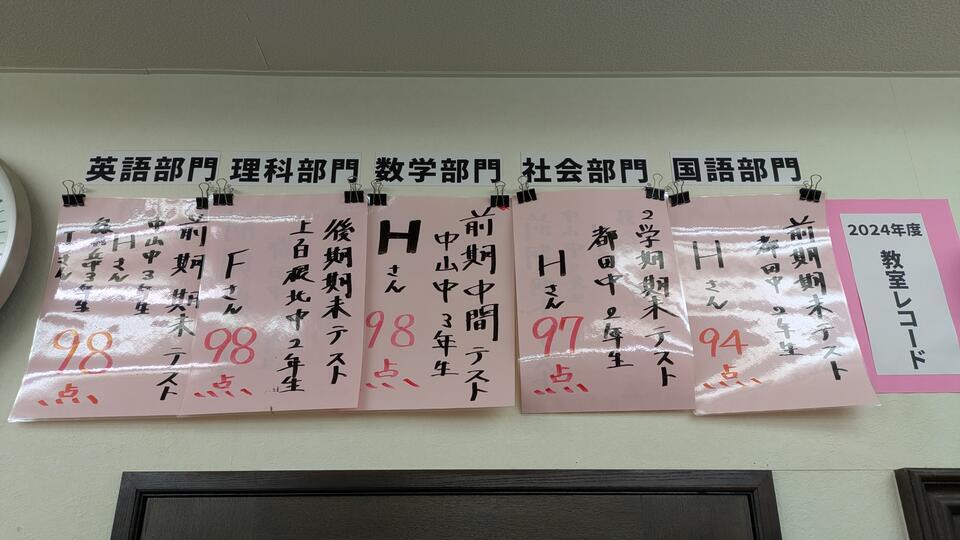 英語部門
理科部門
数学部門
社会部門
国語部門
2024年度
教室レコード
前期期末テスト
都田中2年生
Hさん
94
点
2学期期末テスト
都田中2年生
Hさん
97
点
前期中間テスト
中山中3年生
Hさん
98
点
後期期末テスト
上白根北中2年生
Fさん
98
点
前期期末テスト
中山中3年生
Hさん
年生
さん
98
点